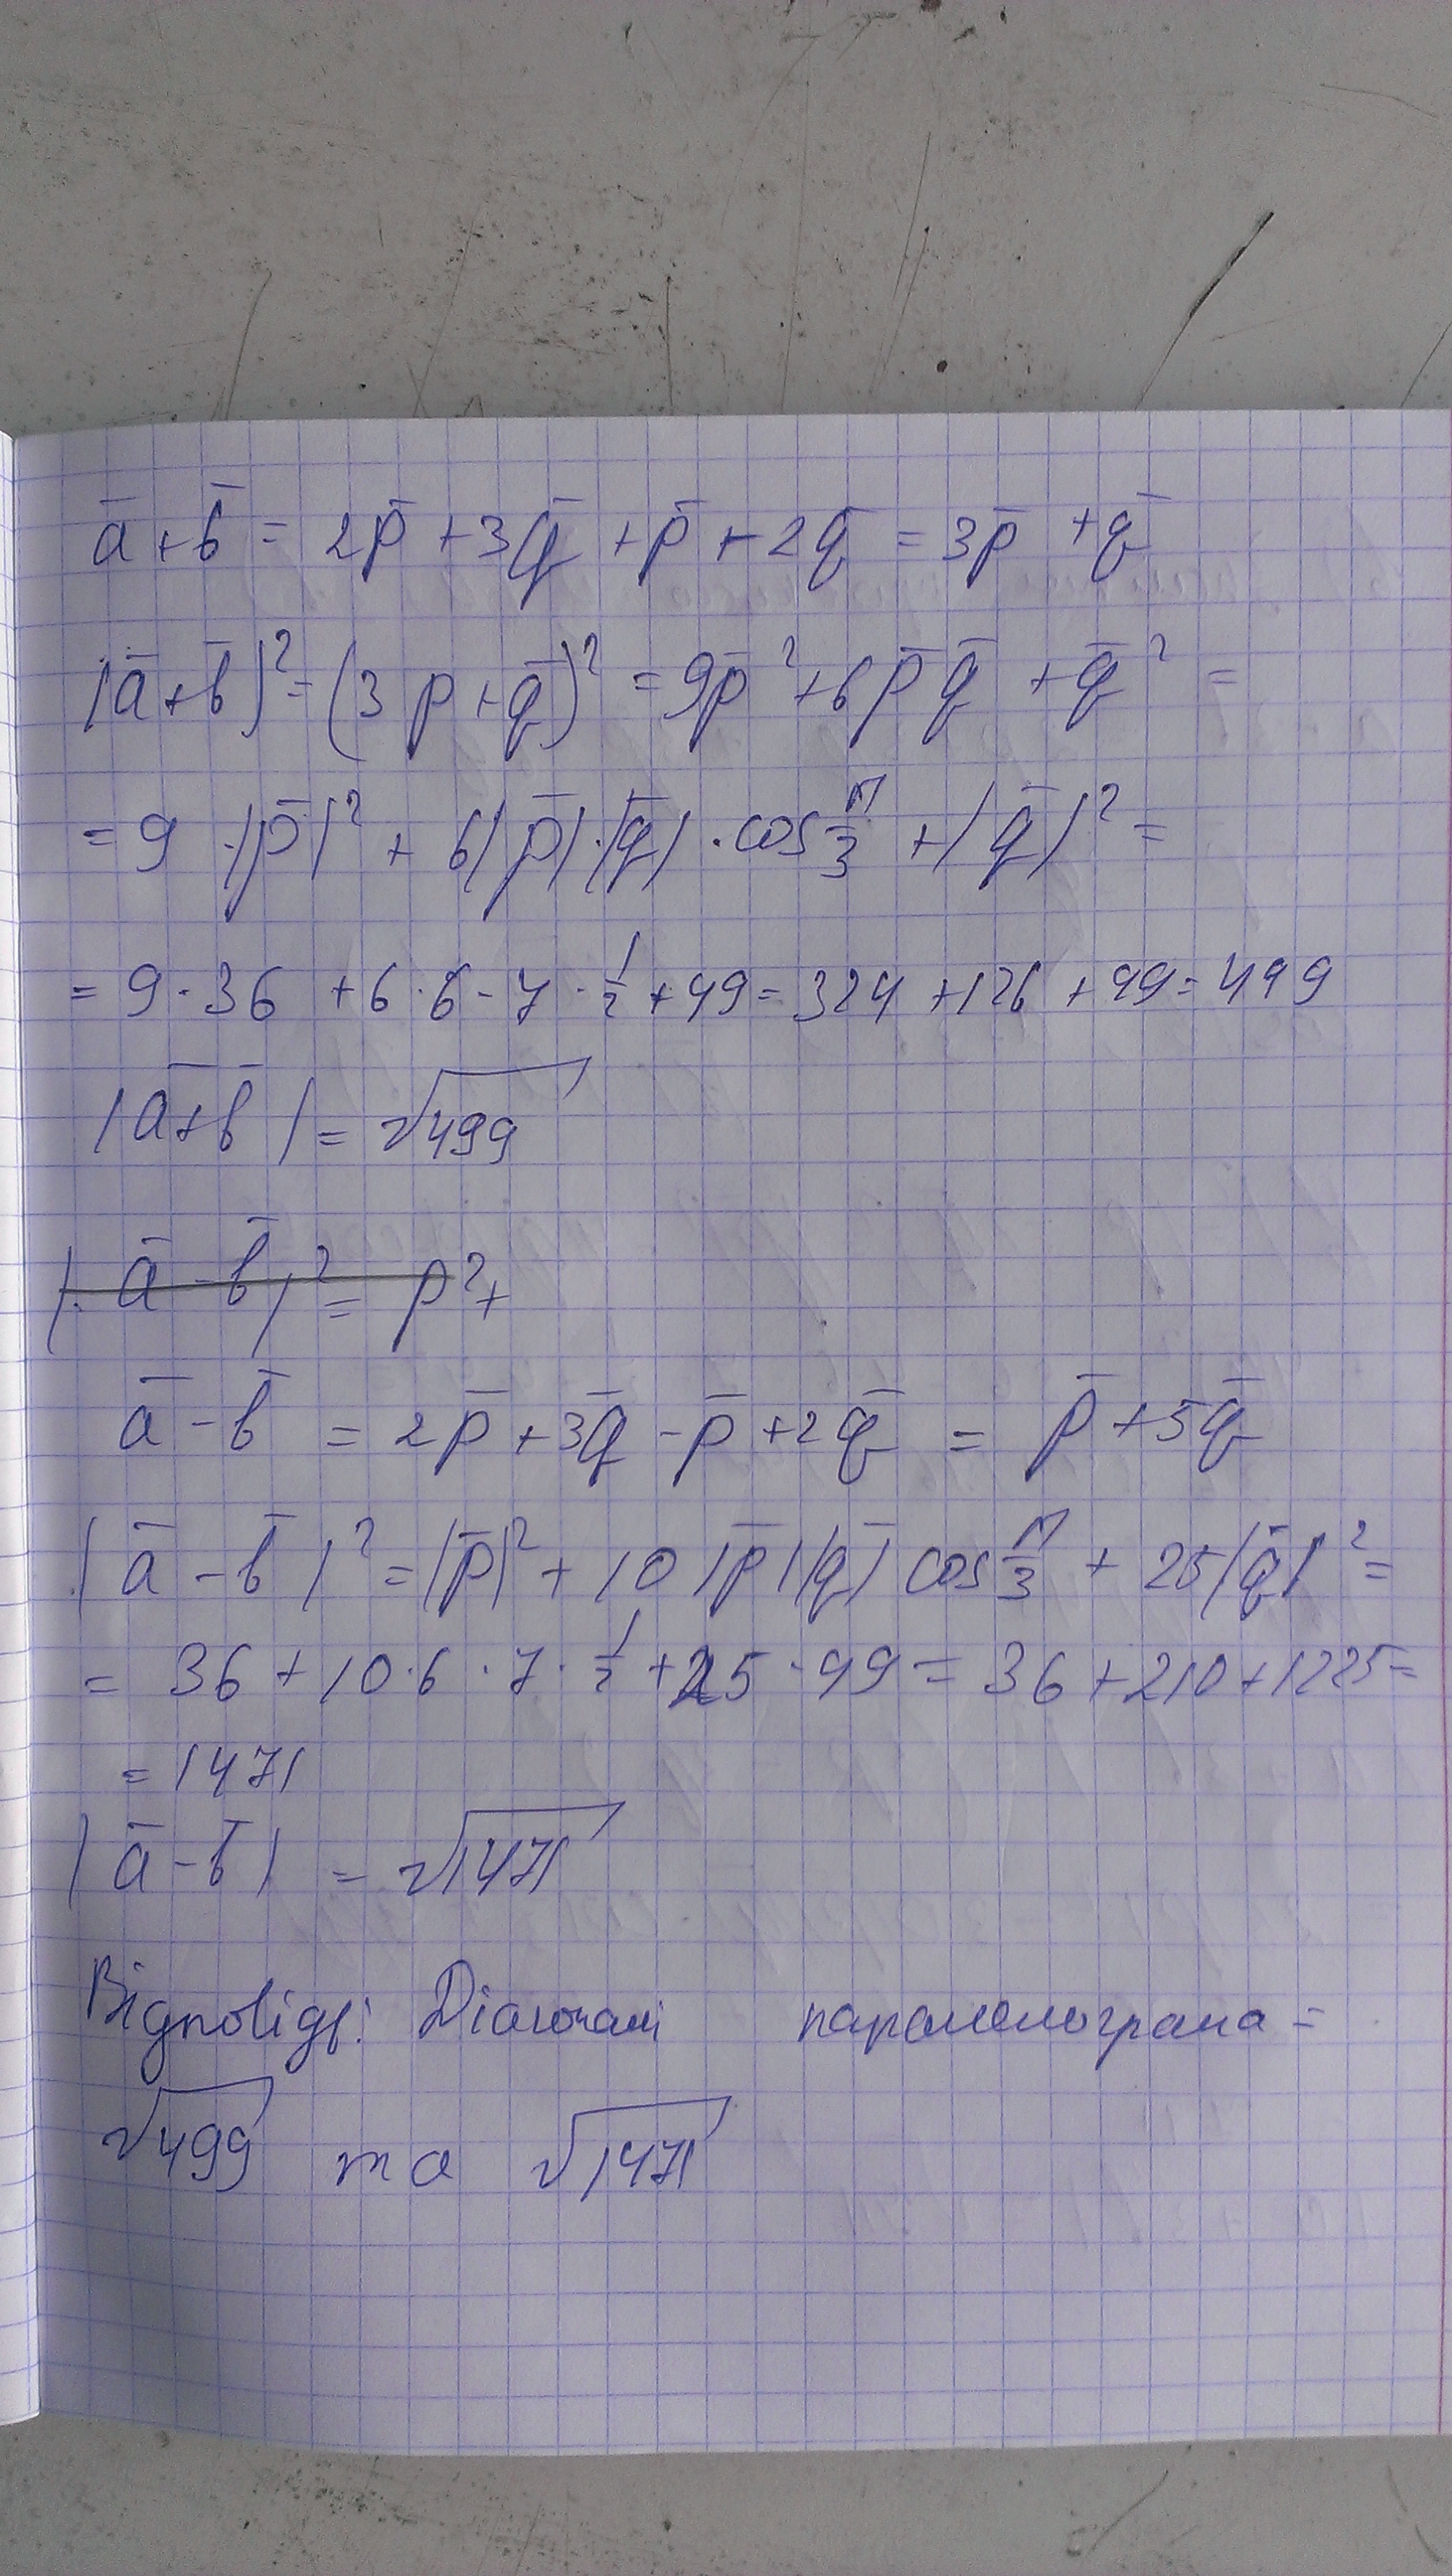 a̅ + b̅ = 2p̅ + 3q̅ + p̅ - 2q̅ = 3p̅ + q̅
|a̅ + b̅|² = (3p + q̅)² = 9p̅² + 6p̅q̅ + q̅² =
= 9·|p̅|² + 6|p̅|·|q̅|·cos π/3 + |q̅|² =
= 9·36 + 6·6·7·1/2 + 49 = 324 + 126 + 49 = 499
|a̅+b̅| = √499
|a̅ - b̅|² = p² +
a̅ - b̅ = 2p̅ + 3q̅ - p̅ + 2q̅ = p̅ + 5q̅
|a̅ - b̅|² = |p̅|² + 10|p̅||q̅| cos π/3 + 25|q̅|² =
= 36 + 10·6·7·1/2 + 25·49 = 36 + 210 + 1225 =
= 1471
|a̅ - b̅| = √1471
Відповідь: Діагоналі паралелограма =
√499 та √1471